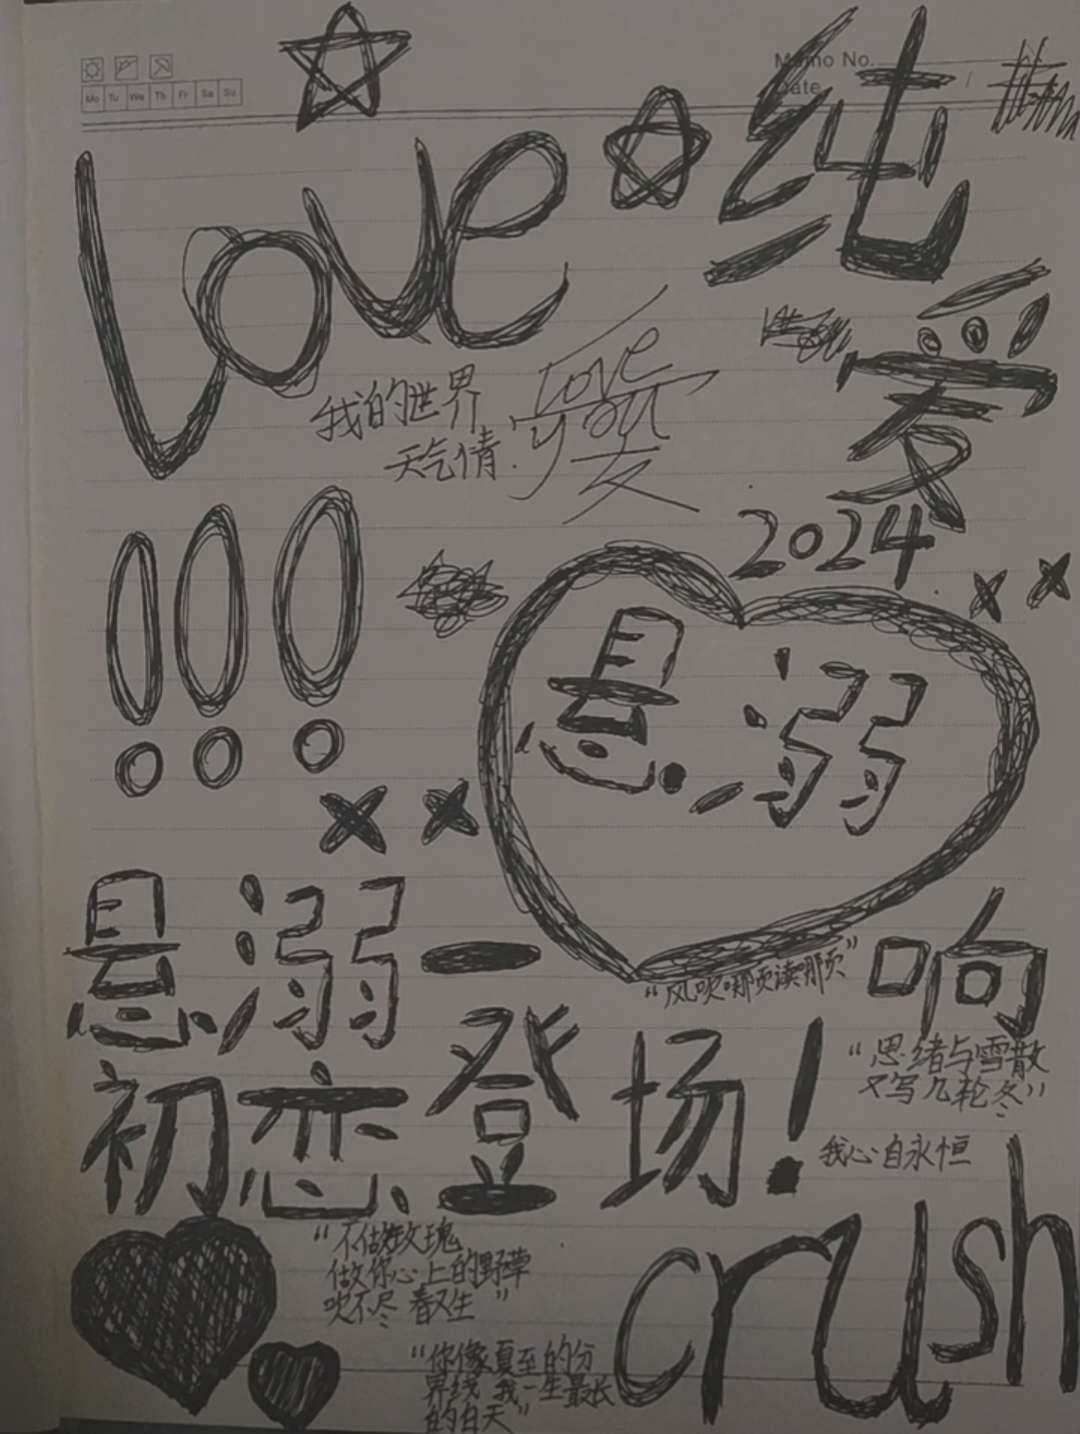 Memo No.
Date
Mo Tu We Th Fr Sa Su
Love
纯
爱
我的世界
天气情.
love
you
2024
悬溺
悬溺一响
初恋登场!
“风吹哪页读哪页”
“思绪与雪散
又写几轮冬”
我心自永恒
“不做玫瑰
做你心上的野草
吹不尽 春又生”
“你像夏至的分
界线 我一生最长
的白天”
crush